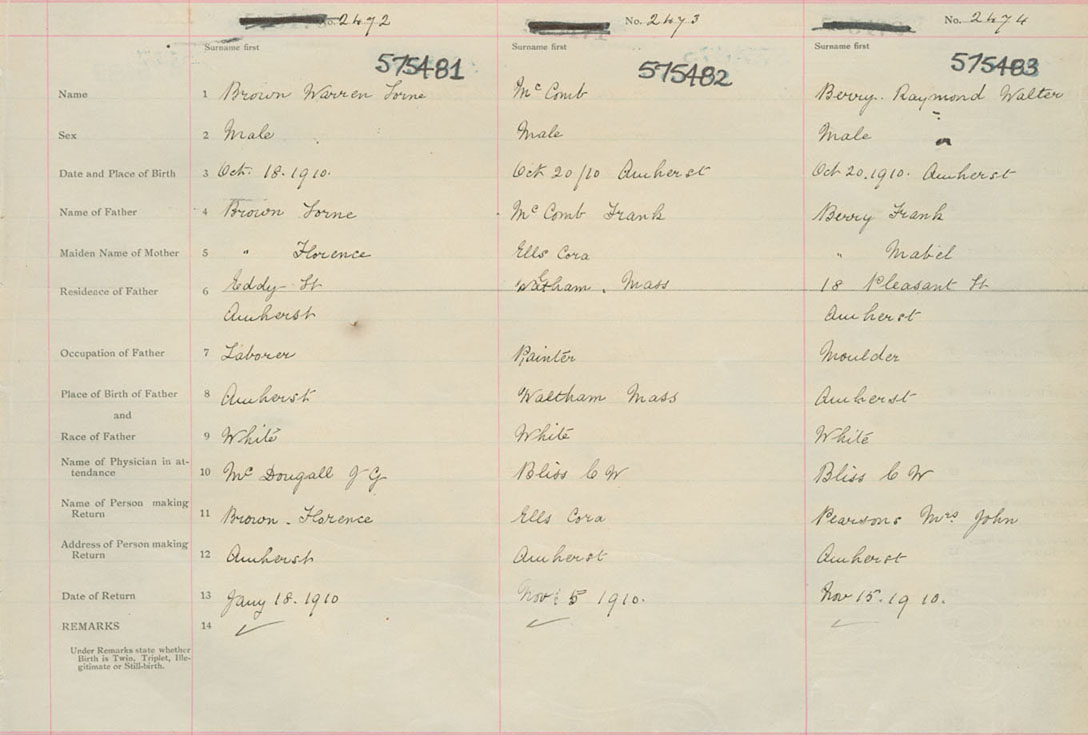 No. 2472 No. 2473 No. 2474
Surname first Surname first Surname first
575481 575482 575483
Name 1 Brown Warren Lorne Mc Comb Berry. Raymond Walter
Sex 2 Male Male Male
Date and Place of Birth 3 Oct. 18. 1910. Oct 20/10 Amherst Oct 20. 1910. Amherst
Name of Father 4 Brown Lorne Mc Comb Frank Berry Frank
Maiden Name of Mother 5 " Florence Ells Cora " Mabel
Residence of Father 6 Eddy St Waltham, Mass 18 Pleasant St
Amherst Amherst
Occupation of Father 7 Laborer Painter Moulder
Place of Birth of Father 8 Amherst Waltham Mass Amherst
and
Race of Father 9 White White White
Name of Physician in at-
tendance 10 Mc Dougall J G Bliss C W Bliss C W
Name of Person making
Return 11 Brown. Florence Ells Cora Pearsons Mrs John
Address of Person making
Return 12 Amherst Amherst Amherst
Date of Return 13 Jany 18. 1910 Nov 5 1910. Nov 15. 1910.
REMARKS 14
Under Remarks state whether
Birth is Twin, Triplet, Ille-
gitimate or Still-birth.